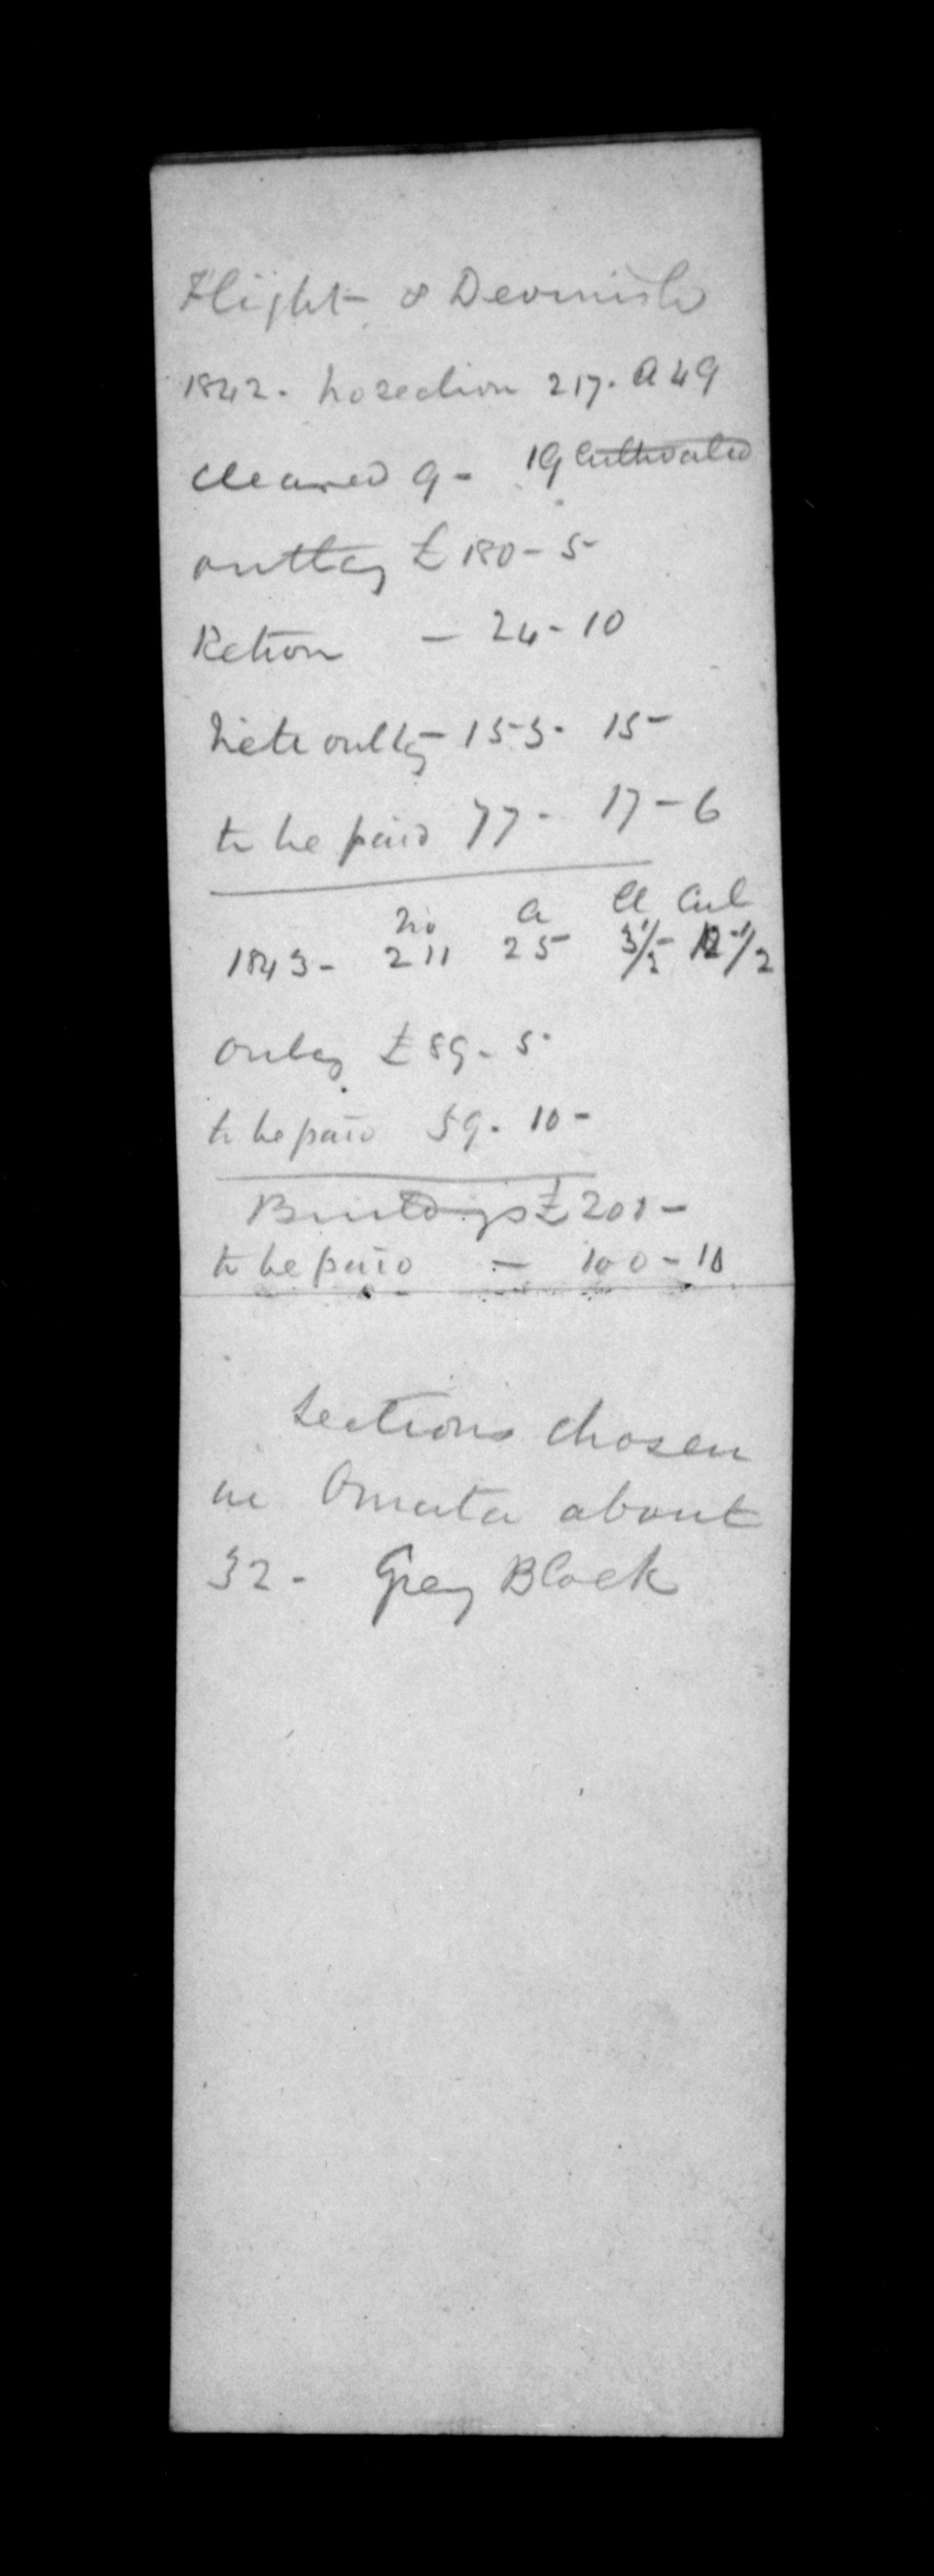 Flight & Devenish
1842. No section 217. A 49
Cleared 9 - 19 Cultivated
outlay £ 180 - 5
Return - 24 - 10
Nete outlay - 155 - 15 -
to be paid 77 - 17 - 6
No a Cl Cul
1843 - 211 25 3 1/2 - 12 - 1/2
Outlay £ 89 - 5
to be paid 59 - 10 -
Buildings £ 201 -
to be paid - 100 - 10
Sections chosen
in Omata about
32 - Grey Block